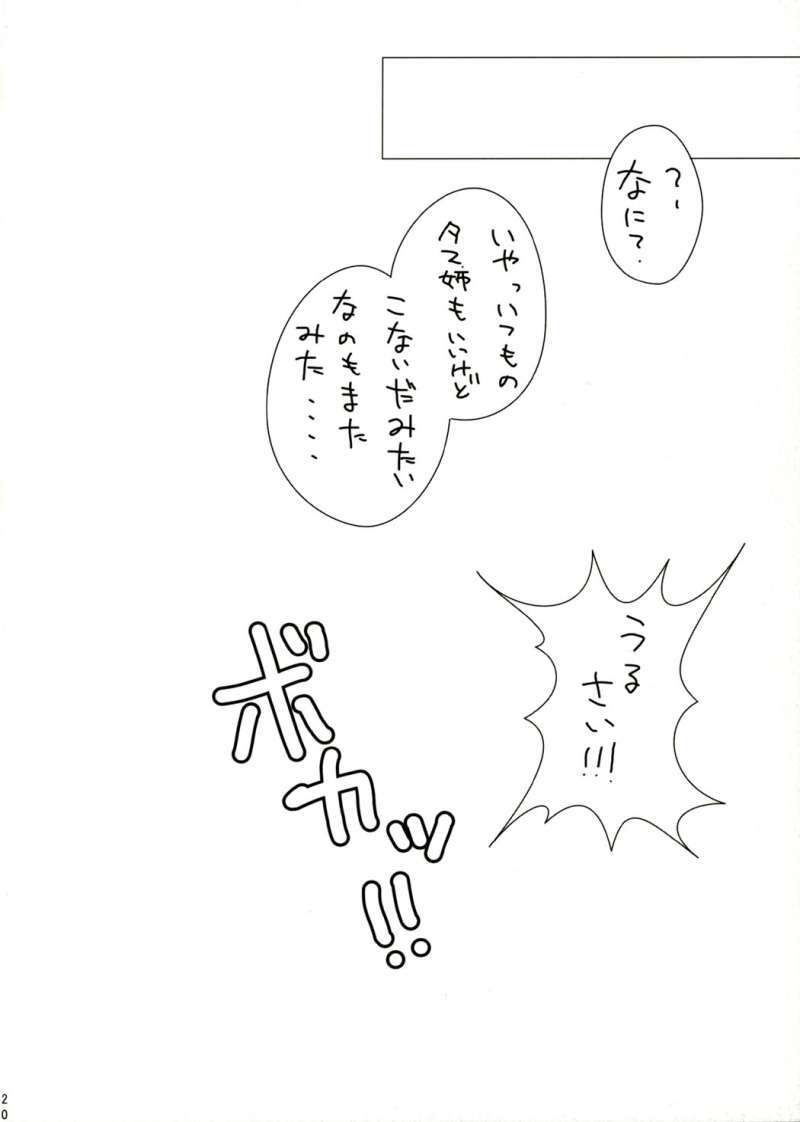 ?-
なに?
いやっいつもの
タマ姉もいいけど
こないだみたい
なのもまた
みた・・・・
うる
さい!!!
ボカッ!!
20